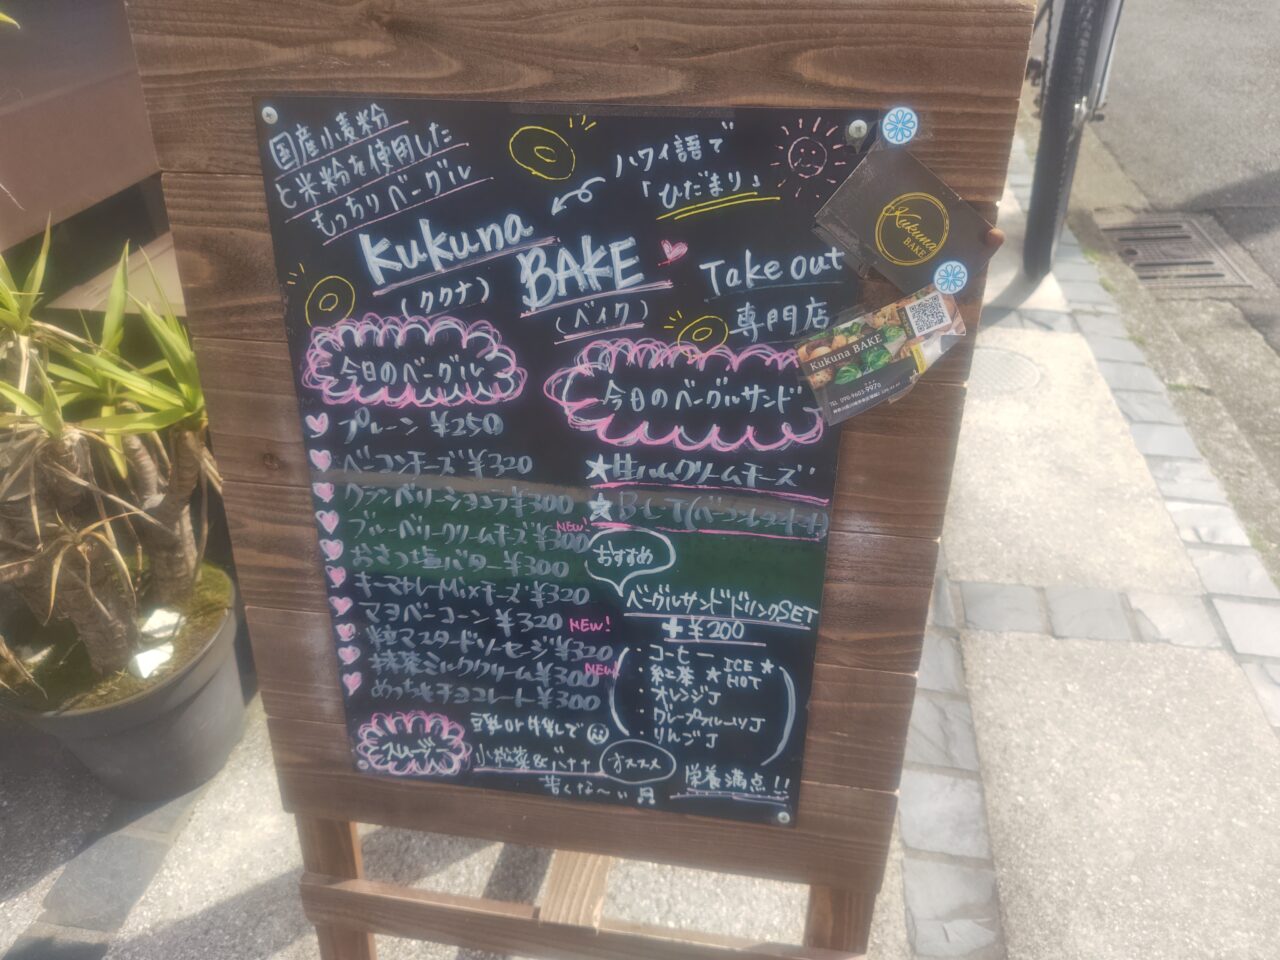 国産小麦粉
と米粉を使用した
もっちりベーグル
ハワイ語で
「ひだまり」
Kukuna
(ククナ)
BAKE
(ベイク)
Take out
専門店
今日のベーグル
プレーン ¥250
ベーコンチーズ ¥320
クランベリーショコラ ¥300
ブルーベリークリームチーズ ¥300
NEW!
おさつ塩バター ¥300
キーマカレーMixチーズ ¥320
マヨベーコーン ¥320 NEW!
粒マスタードソーセージ ¥320
抹茶ミルククリーム ¥300
NEW!
めっちゃチョコレート ¥300
今日のベーグルサンド
★生ハムクリームチーズ
★BLT(ベーコンレタストマト)
おすすめ
ベーグルサンドドリンクSET
+¥200
・コーヒー
・紅茶 ★ICE★HOT
・オレンジJ
・グレープフルーツJ
・りんごJ
スムージー
豆乳or牛乳で
小松菜&バナナ
オススメ
苦くな〜い
栄養満点!!
Kukuna
BAKE
Kukuna BAKE
TEL 090-9603-9970